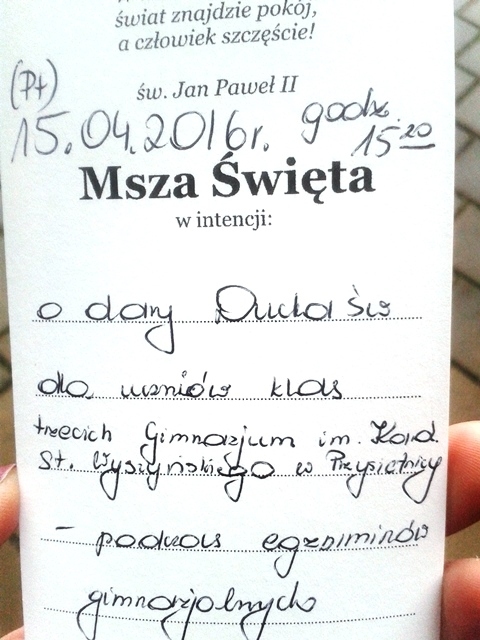 świat znajdzie pokój,
a człowiek szczęście!
św. Jan Paweł II
(Pt)
15.04.2016r. godz. 15²⁰
Msza Święta
w intencji:
o dary Ducha św
dla uczniów klas
trzecich Gimnazjum im. Kard.
St. Wyszyńskiego w Przysietnicy
- podczas egzaminów
gimnazjalnych